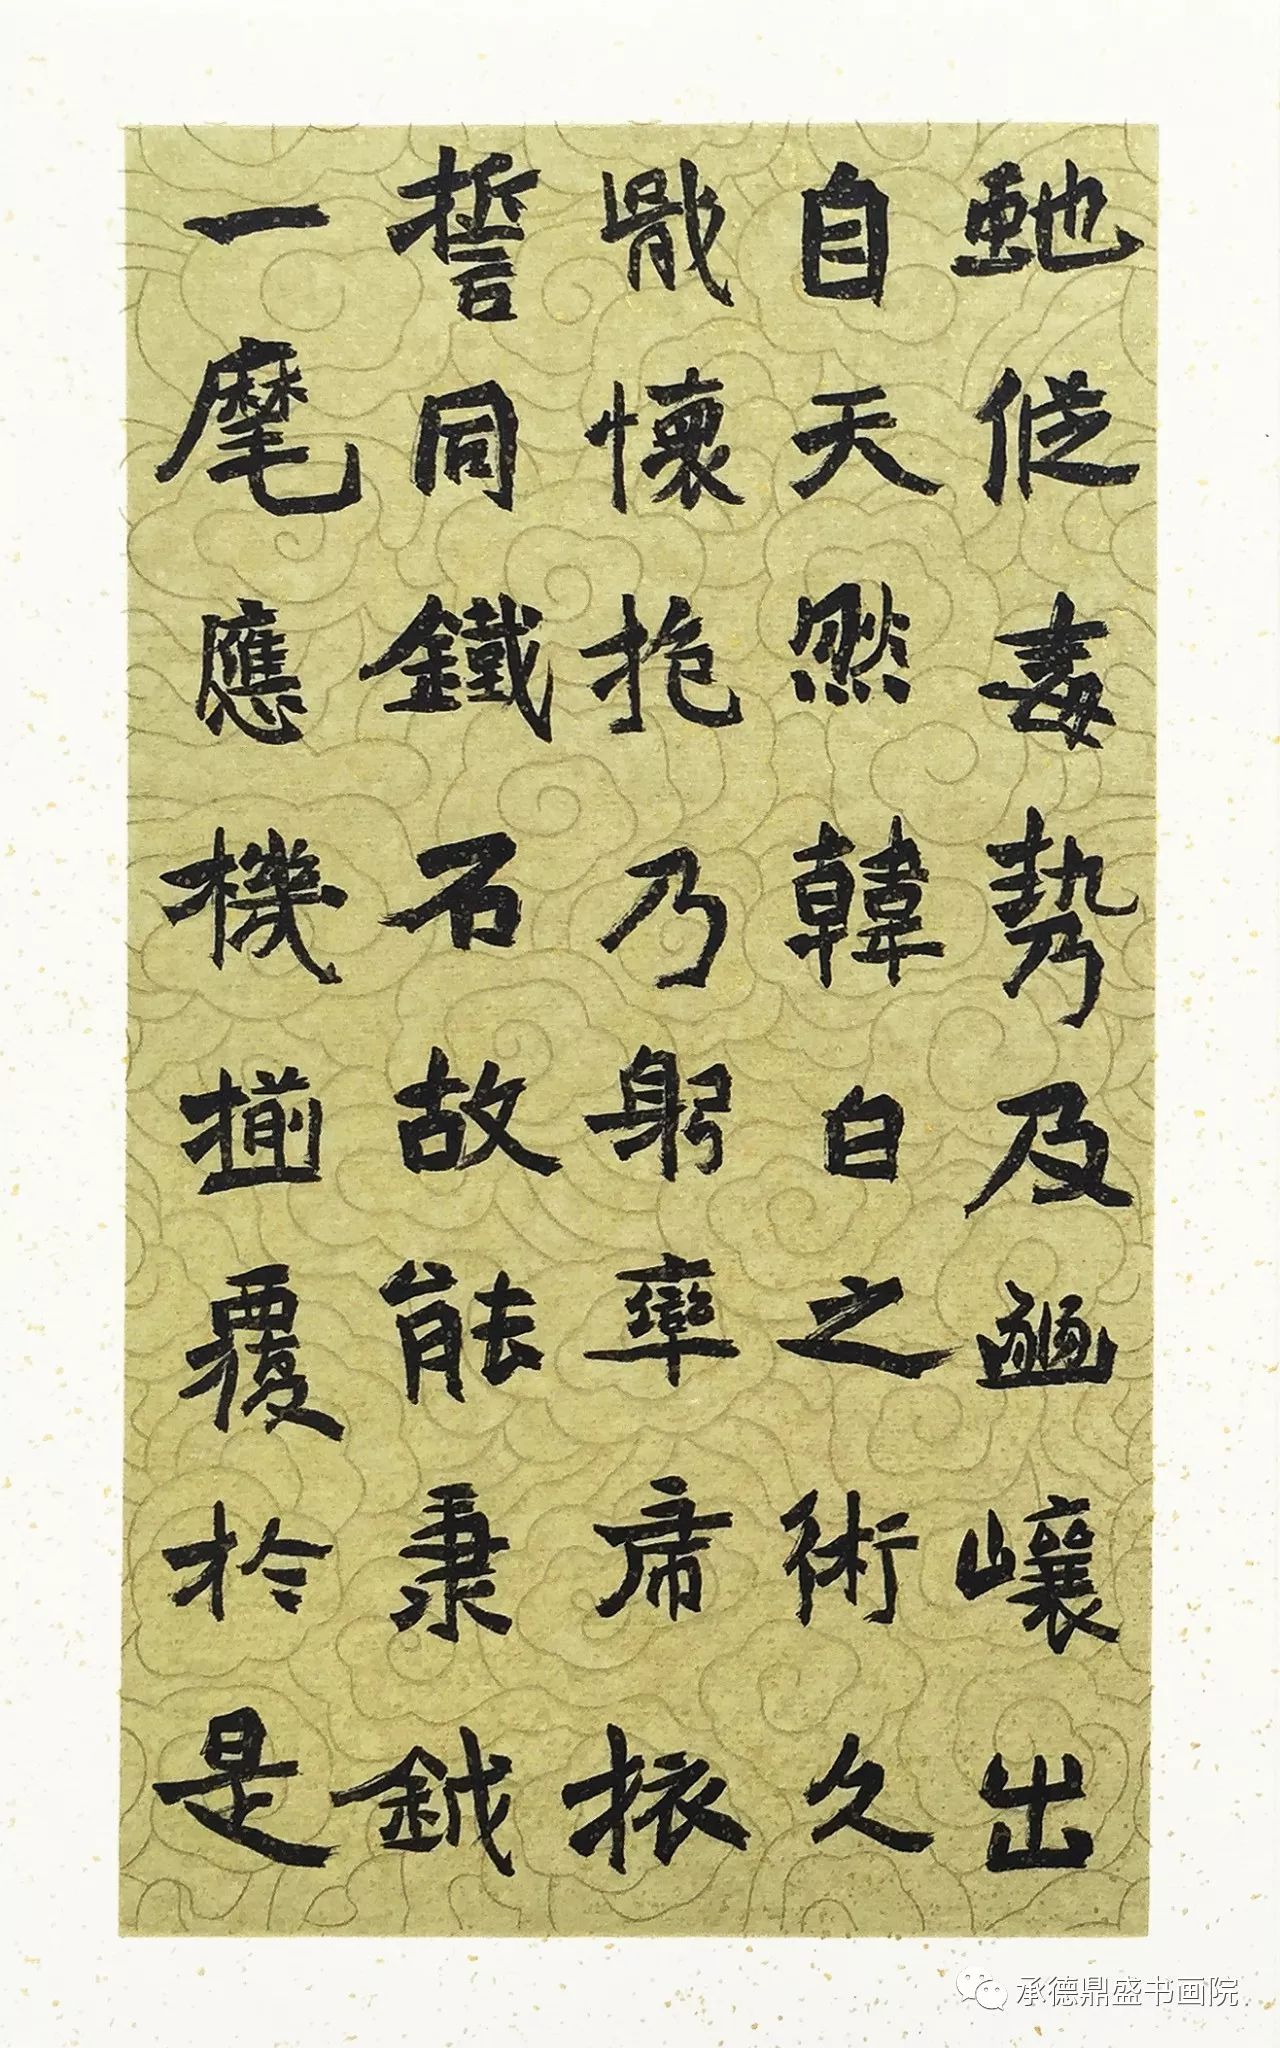 虵從毒勢及出
自天然韓白之術久
戢懷抱乃躬率席
誓同鐵石故能秉鉞
一麾應機揃覆於是
承德鼎盛书画院